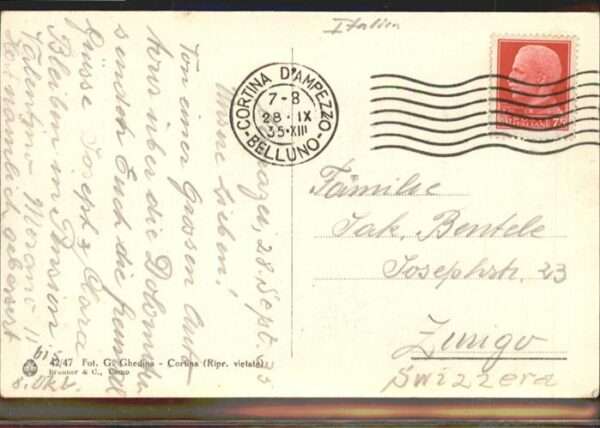 Italien
CORTINA D'AMPEZZO
7-8
28·IX
35·XIII
BELLUNO
28. Sept.
Meine Lieben!
Von einer Grossen Auto
tour über die Dolomiten
senden Euch die freundl
Grüsse Joseph & Clara
Bleiben in Pension
Merano
bis
8. Okt.
Familie
Jak. Bentele
Josephstr. 23
Zurigo
Swizzera
42/47 Fot. G. Ghedina - Cortina (Ripr. vietata)
Brunner & C., Como